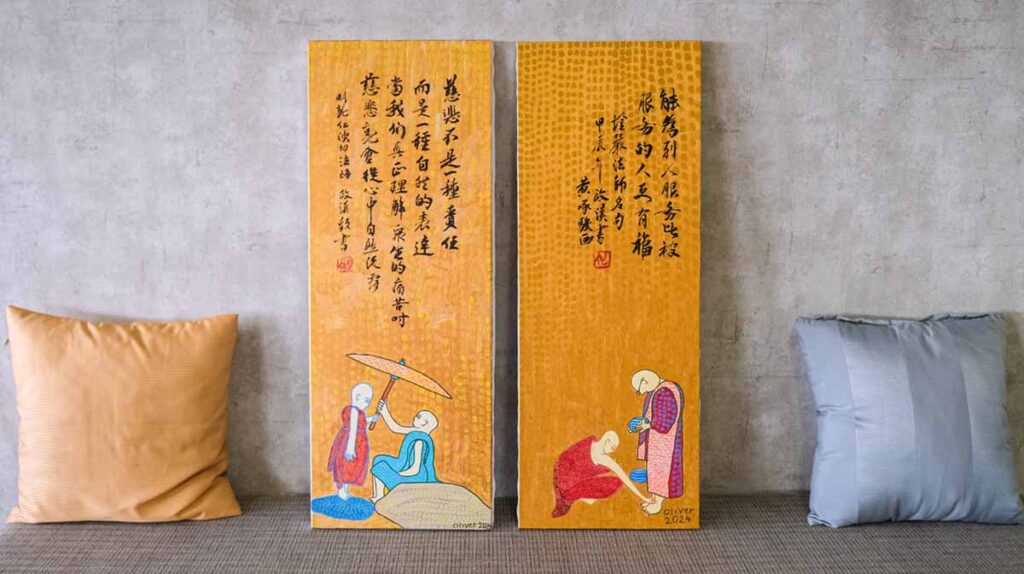 慈悲不是一種責任
而是一種自然的表達
當我們真正理解眾生的病苦时
慈悲就會從心中自然流露
仁波切法語 政漢 書
oliver
能為別人服务比被
服务的人更有福
證嚴法師名句
甲辰年政漢書
黃承 画
oliver
2024